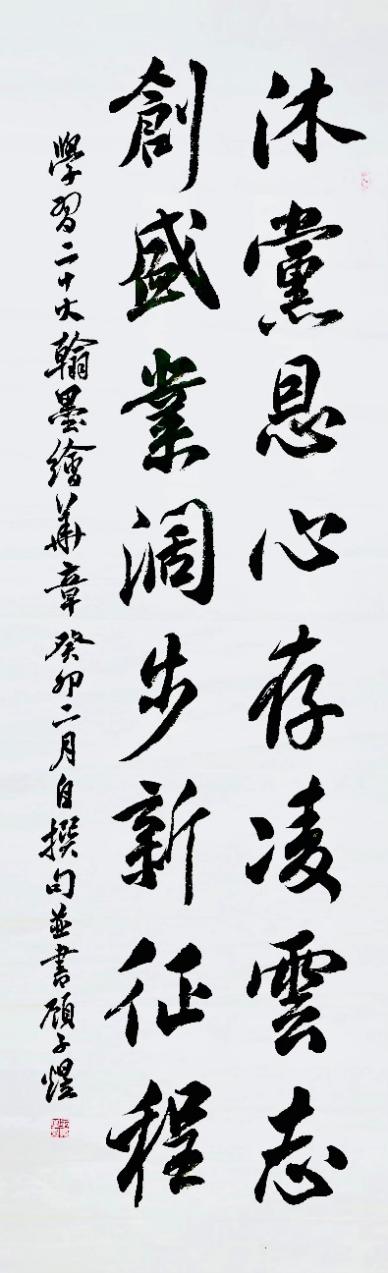 沐黨恩心存凌雲志
創盛業闊步新征程
學習二十大翰墨繪華章癸卯二月自撰句並書顧子煜